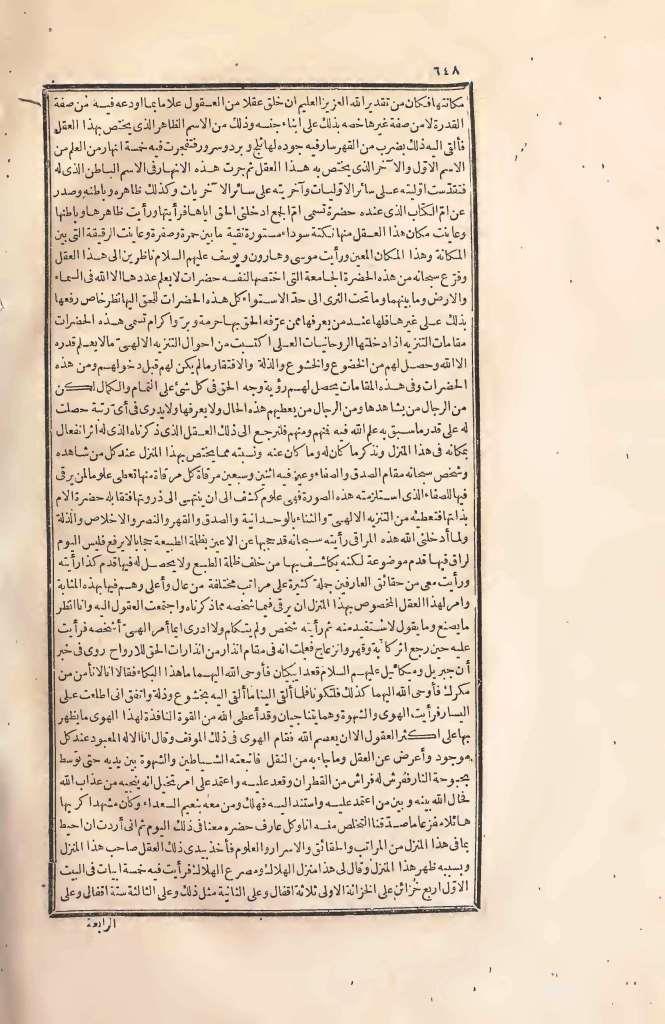 ٦٤٨
مكانتها فكان من تقدير الله العزيز العليم ان خلق عقلا من العقول علامة بما اودعه فيه من صفة
القدرة لا من صفة غيرها خصه بذلك على ابناء جنسه وذلك من الاسم الظاهر الذى يختص بهذا العقل
فألقى اليه ذلك بضرب من القهر سار فيه جود له ثلج وبرد وسرور فتفجرت فيه خمسة انهار من العلم من
الاسم الاول والآخر الذى يختص به هذا العقل ثم جرت هذه الانهار فى الاسم الباطن الذى له
فتقدست اوليته على سائر الاوليات وآخريته على سائر الآخريات وكذلك ظاهره وباطنه وصدر
عن ام الكتاب الذى عنده حضرة تسمى ام الجمع ادخلنى الحق اياها فرأيتها ورأيت ظاهرها وباطنها
وعاينت مكان هذا العقل منها نكتة سوداء مستورة نقية ما بين حمرة وصفرة وعاينت الرقيقة التى بين
المكانة وهذا المكان المعين ورأيت موسى وهارون ويوسف عليهم السلام ناظرين الى هذا العقل
وفرّع سبحانه من هذه الحضرة الجامعة التى اختصها لنفسه حضرات لا يعلم عددها الا الله فى السماء
والارض وما بينهما وما تحت الثرى الى حدّ الاستواء كل هذه الحضرات للحق اليها نظر خاص رفعها
بذلك على غيرها فلها عند من يعرفها ممن عرّفه الحق بها حرمة وبرّ واكرام تسمى هذه الحضرات
مقامات التنزيه اذا دخلتها الروحانيات العلى اكتسبت من احوال التنزيه الالهىّ ما لا يعلم قدره
الا الله وحصل لهم من الخضوع والخشوع والذلة والافتقار ما لم يكن لهم قبل دخولهم ومن هذه
الحضرات وفى هذه المقامات يحصل لهم رؤية وجه الحق فى كل شئ على التمام والكمال لكن
من الرجال من يشاهدها ومن الرجال من يعطيهم هذه الحال ولا يعرفها ولا يدرى فى أىّ رتبة حصلت
له على قدر ما سبق به علم الله فيه فمنهم ومنهم فلنرجع الى ذلك العقل الذى ذكرناه الذى له اثر انفعال
بمكانه فى هذا المنزل ونذكر ما كان له وما كان عنه ونسبته مما يختص بهذا المنزل عند كل من شاهده
وشخص سبحانه مقام الصدق والصفاء وعين فيه اثنين وسبعين مرقاة كل مرقاة منها تعطى علوما لمن يرقى
فيها للصفاء الذى استلزمته هذه الصورة فهى علوم كشف الى ان ينتهى الى ذروتها فتقابله حضرة الام
بذاتها فتعطيه من التنزيه الالهىّ والثناء بالوحدانية والصدق والقهر والنصر والاخلاص والذلة
ولما أدخلنى الله هذه المراقى رأيته سبحانه قد حجبها عن الاعين بظلمة الطبيعة حجابا لا يرفع فليس اليوم
لراق فيها قدم موضوعة لكنه يكاشف بها من خلف ظلمة الطبع ولا يحصل له فيها قدم كذا رأيته
ورأيت معى من حقائق العارفين جملة كثيرة على مراتب مختلفة من عال وأعلى وهم فيها بهذه المثابة
وامر لهذا العقل المخصوص بهذا المنزل ان يرقى فيما شخصه مما ذكرناه واجتمعت العقول اليه وانا انظر
ما يصنع وما يقول لاستفيد منه ثم رأيته شخص ولم يتكلم ولا ادرى ايما أمر الهىّ أشخصه فرأيت
عليه حين رجع اثر كآبة وقهر وانزعاج فعلمت انه فى مقام انذار من انذارات الحق للارواح روى فى خبر
أن جبريل وميكائيل عليهم السلام قعدا يبكيان فأوحى الله اليهما ما هذا البكاء فقالا انا لا نأمن من
مكرك فأوحى الله اليهما كذلك فلتكونا فلما ألقى الينا ما ألقى اليه بخشوع وذلة واتفق انى اطلعت على
اليسار فرأيت الهوى والشهوة وهما يتناجيان وقد أعطى الله من القوة النافذة لهذا الهوى ما يظهر
بها على اكثر العقول الا ان يعصم الله فقام الهوى فى ذلك الموقف وقال انا الاله المعبود عند كل
موجود وأعرض عن العقل وما جاء به من النقل فاتبعته الشياطين والشهوة بين يديه حتى توسط
بحبوحة النار ففرش له فراش من القطران وقعد عليه واعتمد على امر تخيل انه ينجيه من عذاب الله
فحال الله بينه وبين من اعتمد عليه واستند اليه فهلك ومن معه بنعيم السعداء وكان مشهدا كريها
هائلا مفزعا ما صدّقنا التخلص منه انا وكل عارف حضره معنا فى ذلك اليوم ثم انى أردت ان احيط
بما فى هذا المنزل من المراتب والحقائق والاسرار والعلوم فأخذ بيدى ذلك العقل صاحب هذا المنزل
وبسببه ظهر هذا المنزل وقال لى هذا منزل الهلاك ومصرع الهلاك فرأيت فيه خمسة ابيات فى البيت
الاول اربع خزائن على الخزانة الاولى ثلاثة اقفال وعلى الثانية مثل ذلك وعلى الثالثة ستة اقفال وعلى
الرابعة